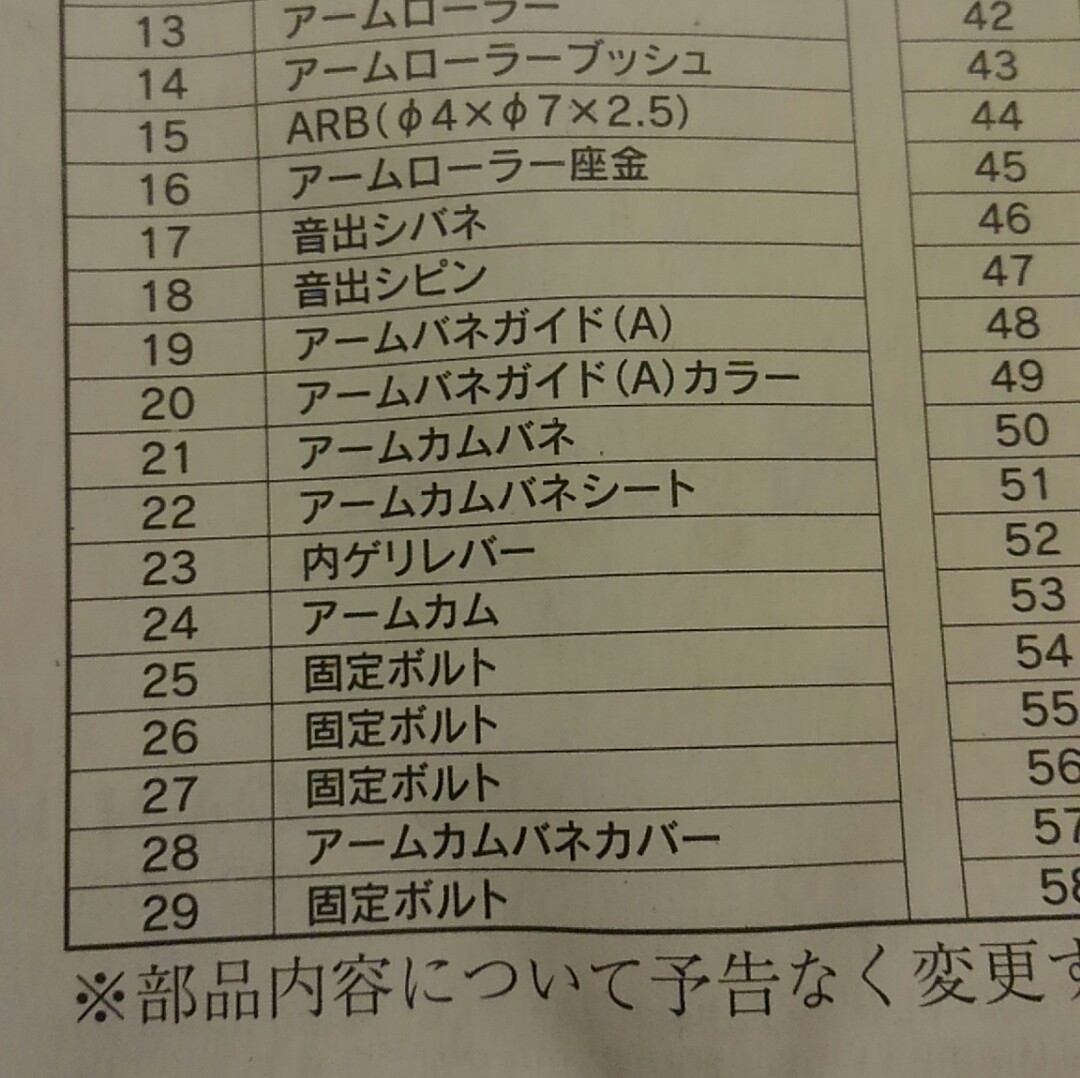 13 アームローラー 42
14 アームローラーブッシュ 43
15 ARB(φ4×φ7×2.5) 44
16 アームローラー座金 45
17 音出シバネ 46
18 音出シピン 47
19 アームバネガイド(A) 48
20 アームバネガイド(A)カラー 49
21 アームカムバネ 50
22 アームカムバネシート 51
23 内ゲリレバー 52
24 アームカム 53
25 固定ボルト 54
26 固定ボルト 55
27 固定ボルト 56
28 アームカムバネカバー 57
29 固定ボルト 58
※部品内容について予告なく変更す